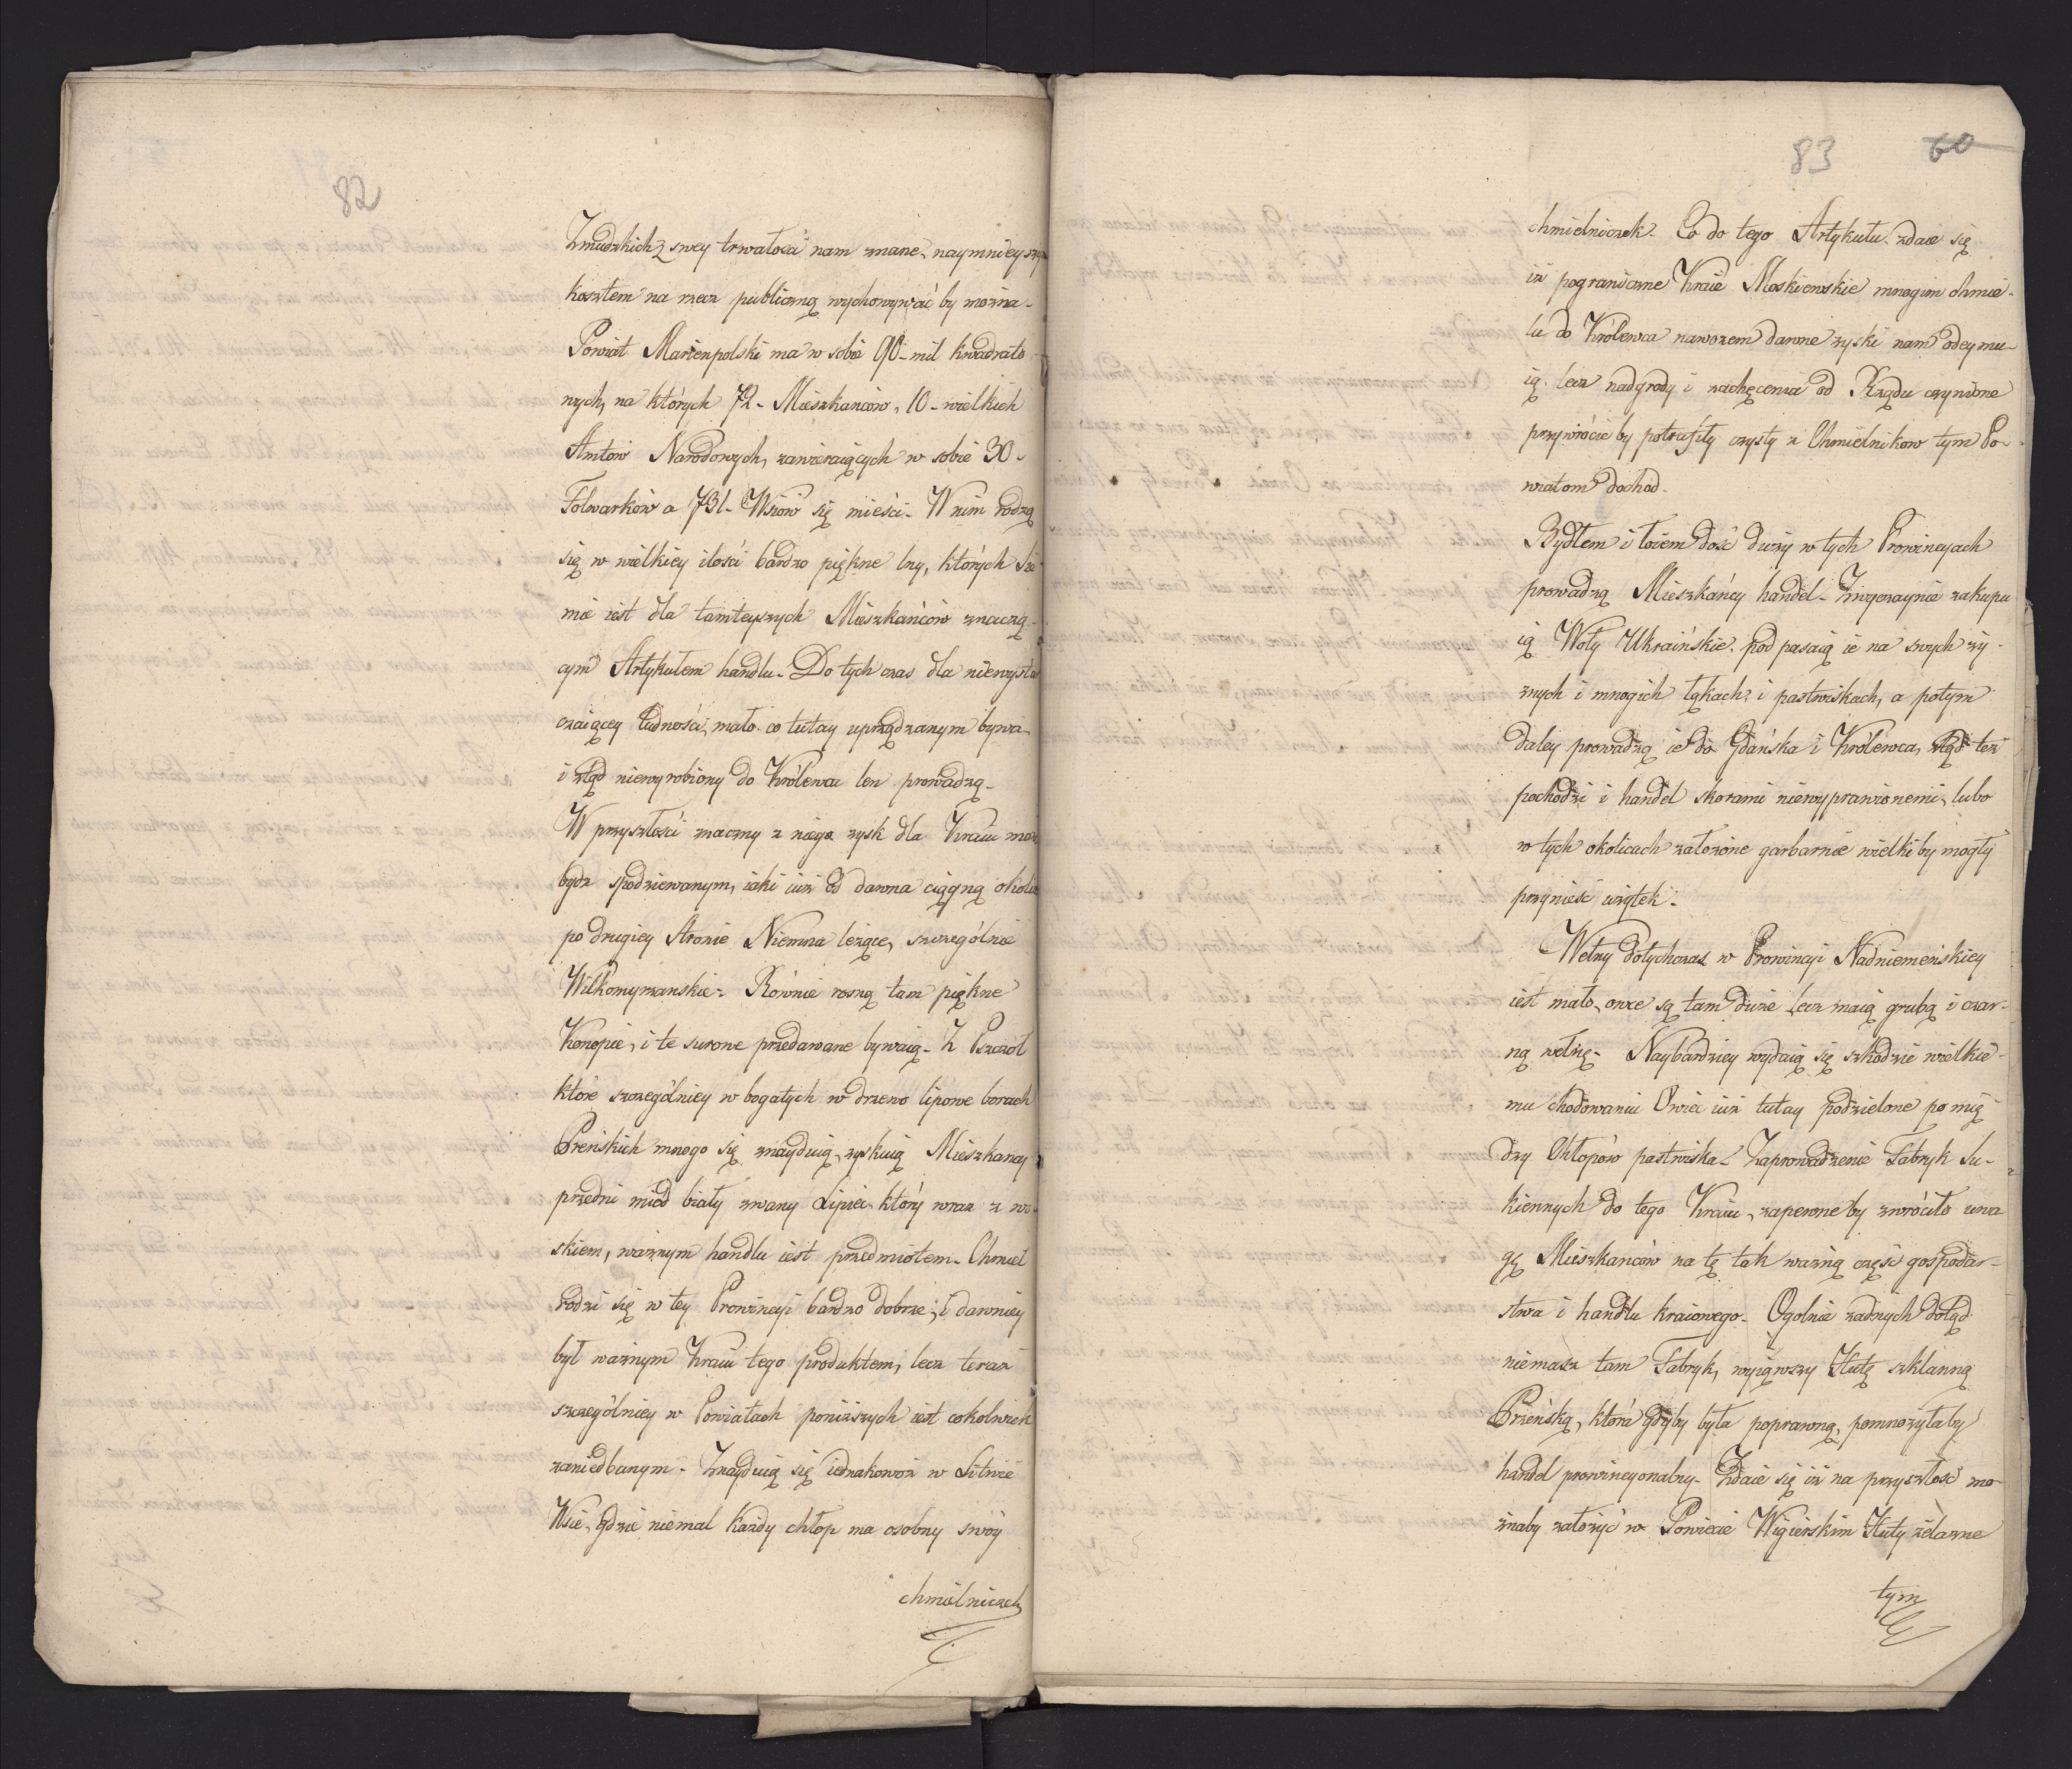 82
Zmudzkich z swey trwałości nam znane, naymnieyszym
kosztem na rzecz publiczną wychowywać by można.
Powiat Marienpolski ma w sobie 90 mil kwadrato
wych, na których 72 Mieszkańców, 10 wielkich
Amtow Narodowych, zawieraiących w sobie 30
Folwarków a 731 Wsiów się mieści. W nim rodzą
się w wielkiey ilości bardzo piękne lny, których Sie
mie iest dla tamteyszych Mieszkańców znaczą-
cym Artykułem handlu. Do tych czas dla niewysta
czaiącey ludności, mało co tutay uprządzanym bywa
i ztąd niewyrobiony do Królewca len prowadzą.
W przyszłości znaczny z niego zysk dla Kraiu może
bydz spodziewanym, iaki iuż od dawna ciągną okolice
po drugiey stronie Niemna leżące, szczególnie
Wilkomyrzanskie. Równie rosną tam piękne
Konopie, i te surowe przedawane bywaią. Z Pszczół
które szczególniey w bogatych w drzewo lipowe borach
Preńskich mnogo się znayduią, zyskuią Mieszkancy
przedni miód biały zwany Lipiec, który wraz z wo-
skiem, ważnym handlu iest przedmiotem. Chmiel
rodzi się w tey Prowincyi bardzo dobrze, i dawniey
był ważnym Kraiu tego produktem, lecz teraz
szczególniey w Powiatach poniższych iest cokolwiek
zaniedbanym. Znayduią się iednakowoż w Litwie
Wsie, gdzie niemal każdy chłop ma osobny swóy
chmielniczek
83 60
chmielniczek. Co do tego Artykułu zdaie się
iż pograniczne Kraie Moskiewskie mnogim chmie-
lu do Królewca nawozem dawne zyski nam odeymu-
ią, lecz nadgrody i zachęcenia od Rządu czynione
przywrócić by potrafiły czysty z Chmielnikow tym Po-
wiatom dochod.
Bydłem i łoiem dość duży w tych Prowincyach
prowadzą Mieszkańcy handel. Zwyczaynie zakupu
ią Woły Ukraińskie, podpasaią ie na swych ży-
znych i mnogich łąkach i pastwiskach, a potym
daley prowadzą ie do Gdańska i Królewca, ztąd też
pochodzi i handel skorami niewyprawionemi, lubo
w tych okolicach założone garbarnie wielki by mogły
przynieść użytek.
Wełny dotychczas w Prowincyi Nadniemeńskiey
iest mało, owce są tam duże lecz maią grubą i czar-
ną wełnę. Naybardziey wydaią się szkodzie wielkie-
mu chodowaniu Owiec iuż tutay podzielone pomię
dzy Chłopów pastwiska. Zaprowadzenie Fabryk Su-
kiennych do tego Kraiu, zapewne by zwróciło uwa
gę Mieszkańców na tę tak ważną część gospodar-
stwa i handlu kraiowego. Ogolnie żadnych dotąd
niemasz tam Fabryk, wyiąwszy Hutę szklanną
Przeńską, która gdyby była poprawną, pomnożyłaby
handel prowincyonalny. Zdaie się iż na przyszłość mo-
żnaby założyć w Powiecie Wigierskim Huty żelazne
tym